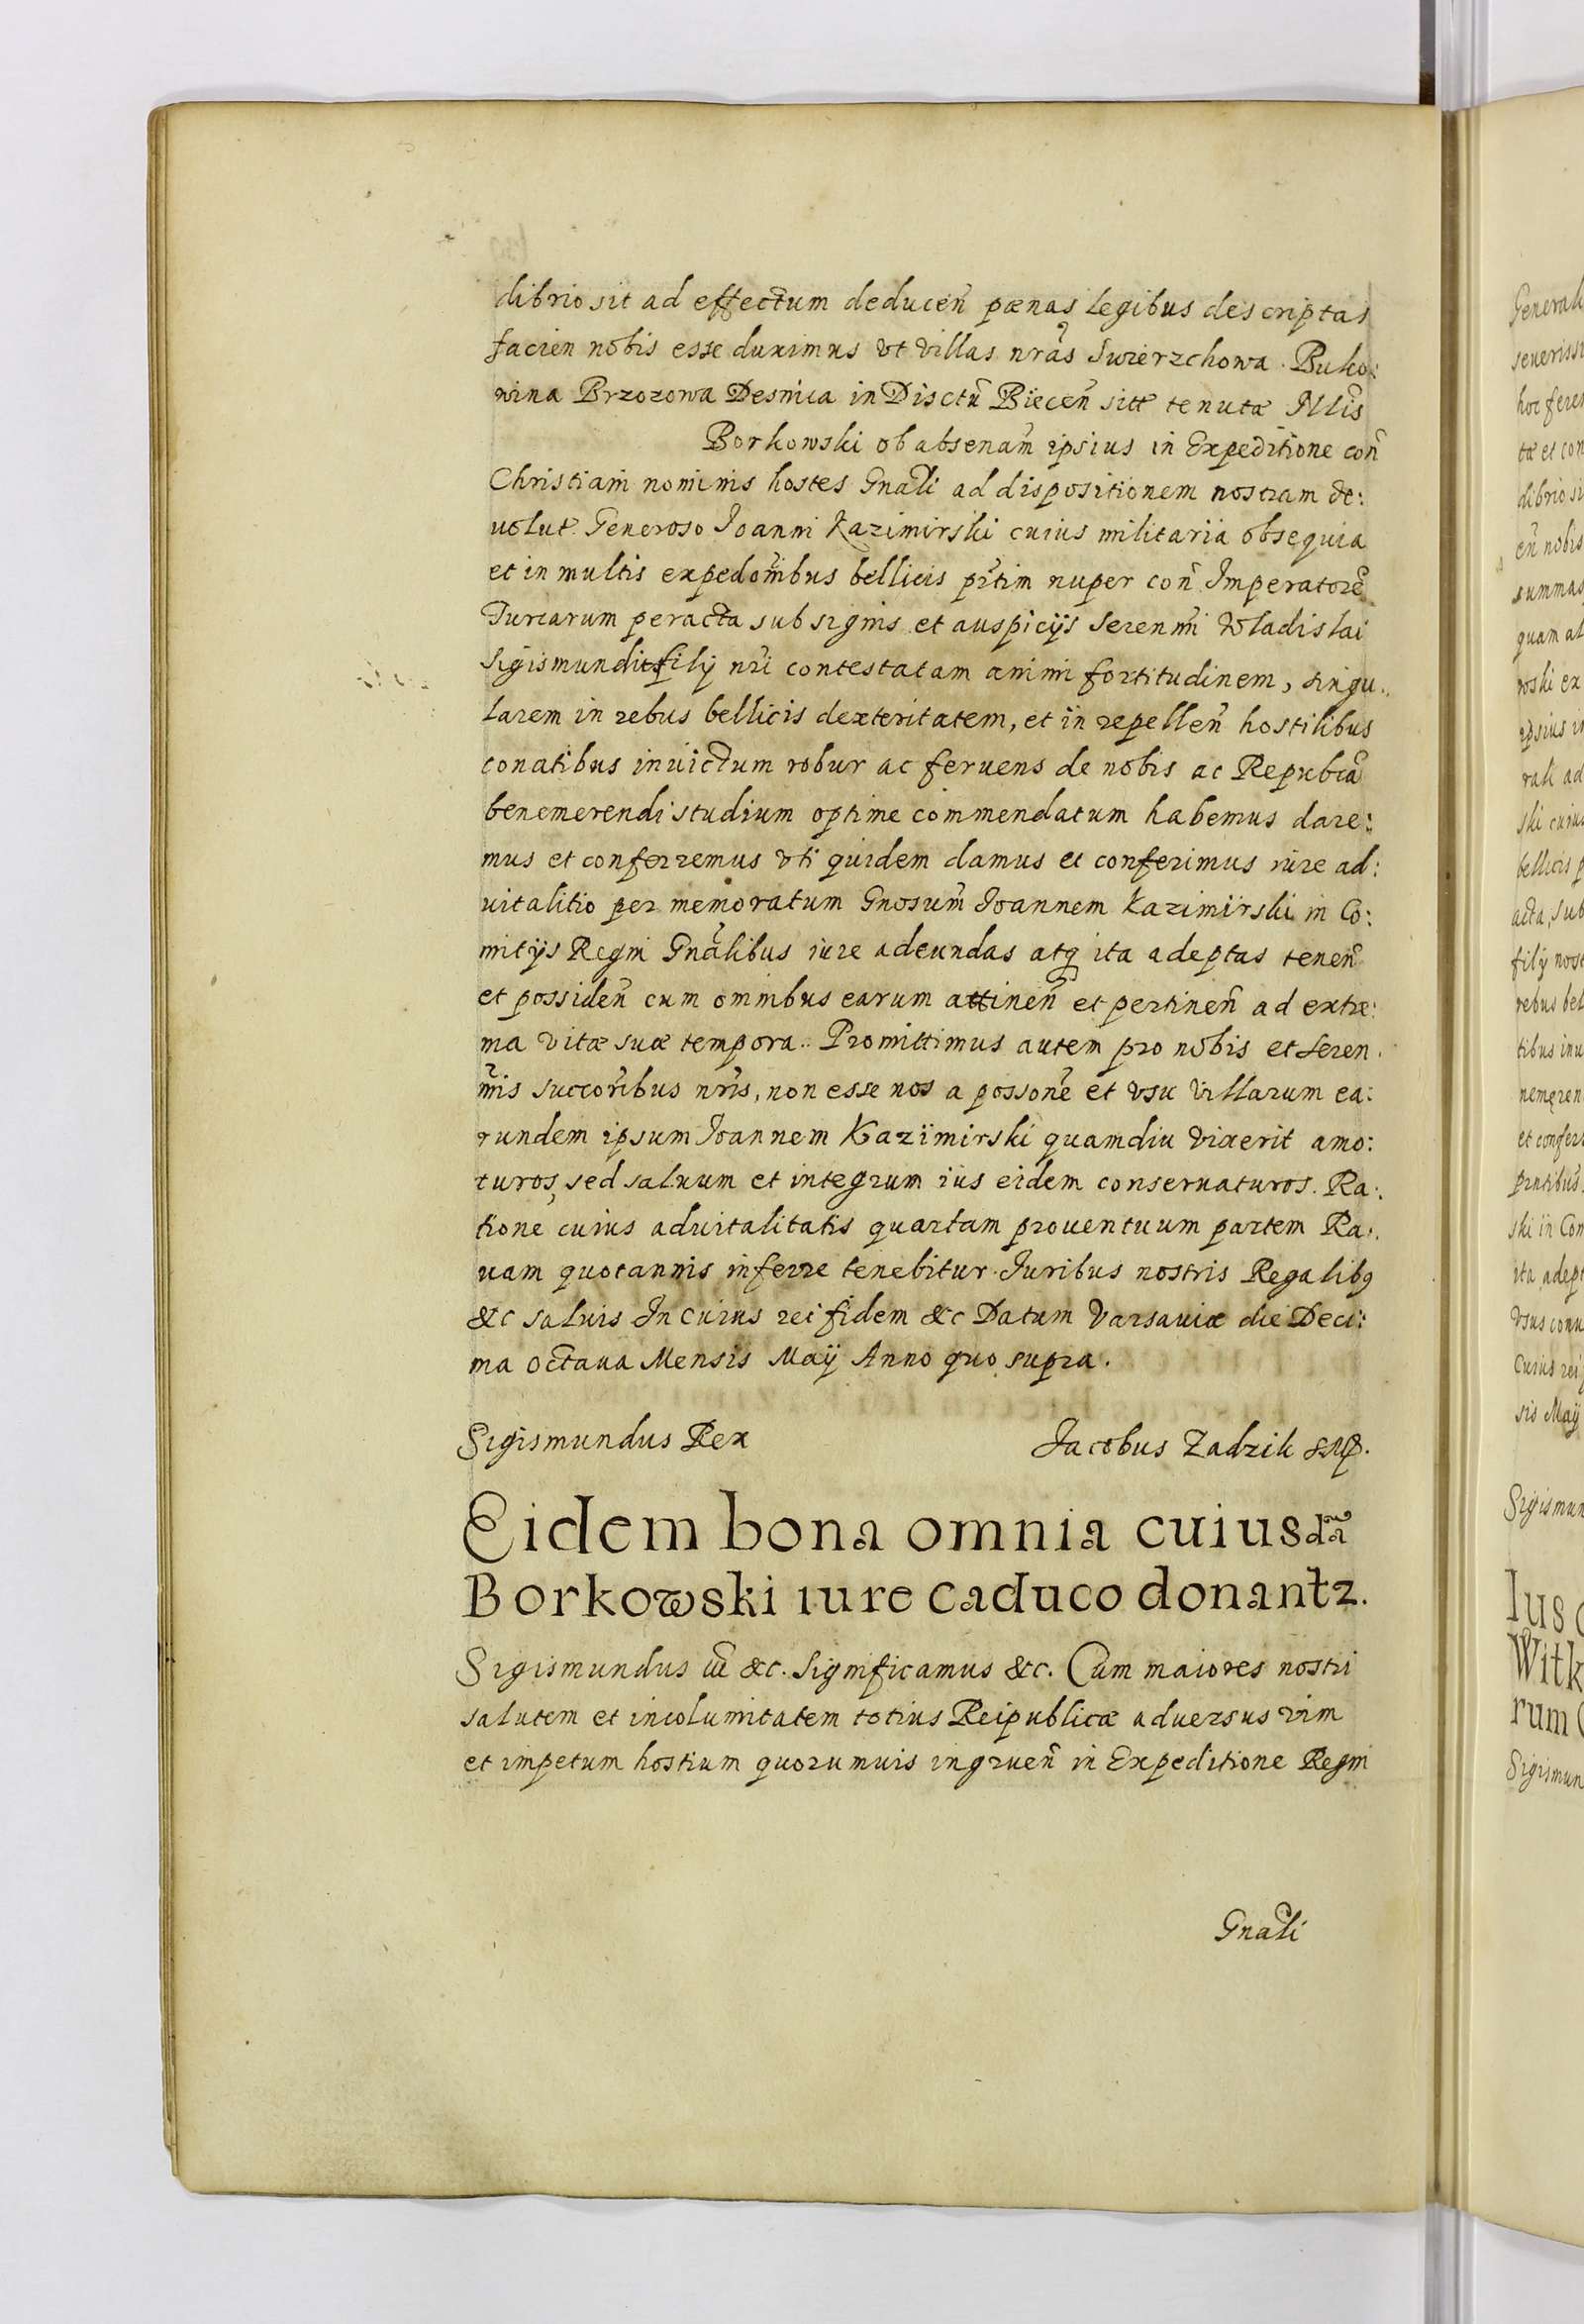 dibrio sit ad effectum deduceñ pœnas legibus descriptas
facieñ nobis esse duximus vt villas nrãs Swierzchowa Buko:
wina Brzozowa Desnica in Disctũ Bieceñ sitt tenutæ Mlis
Borkowski ob absenam̃ ipsius in Expeditione coñ
Christiani nominis hostes Gnãli ad dispositionem nostram de:
volut. Generoso Joanni Kazimirski cuius militaria obsequia
et in multis expedoñibus bellicis pr̃tim nuper coñ Imperatorẽ
Turcarum peracta sub signis et auspicijs Serenm̃i Wladislai
Sigismundi filij nr̃i contestatam animi fortitudinem, singu..
larem in rebus bellicis dexteritatem, et in repelleñ hostilibus
conatibus inuictum robur ac feruens de nobis ac Republcã
benemerendi studium optime commendatum habemus dare:
mus et conferremus vti quidem damus et conferimus iure ad:
uitalitio per memoratum Gnosum̃ Joannem Kazimirski in Co:
mitijs Regni Gnãlibus iure adeundas atq ita adeptas teneñ
et possideñ cum omnibus earum attineñ et pertineñ ad extre:
ma vitæ suæ tempora.. Promittimus autem pro nobis et Seren.
m̃is succoribus̃ nr̃is, non esse nos a possonẽ et vsu villarum ea:
rundem ipsum Joannem Kazimirski quamdiu vixerit amo:
turos, sed saluum et integrum ius eidem conseruaturos. Ra:.
tione cuius aduitalitatis quartam prouentuum partem Ra:.
uam quotannis inferre tenebitur. Juribus nostris Regalibꝯ
&c saluis In cuius rei fidem &c Datum Varsauiæ die Deci:
ma octaua Mensis Maij Anno quo supra.
Sigismundus Rex Jacobus Zadzik SMP.
Eidem bona omnia cuiusdã
Borkowski iure caduco donantz.
Sigismundus iii &c. Significamus &c. Cum maiores nostri
salutem et incolumitatem totius Reipublicæ aduersus vim
et impetum hostium quorumuis ingrueñ in Expeditione Regni
Gnãli